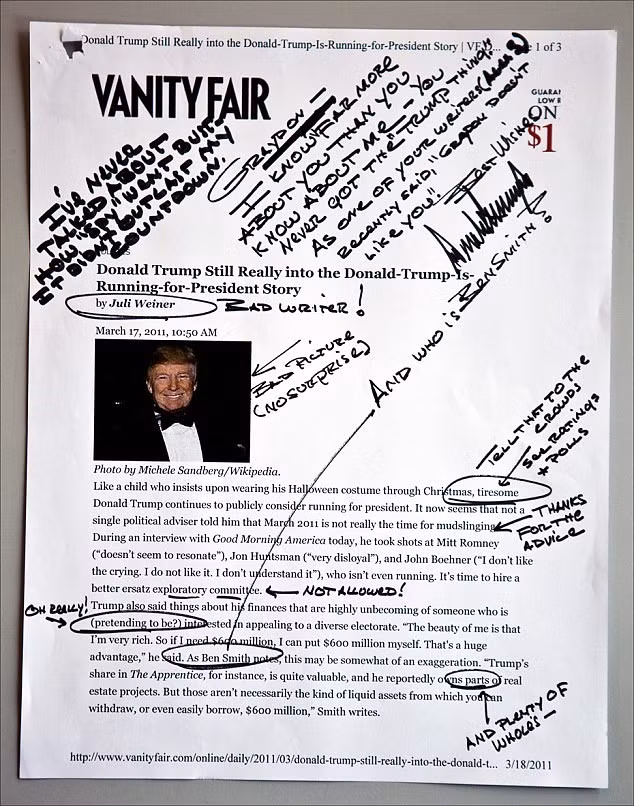 Donald Trump Still Really into the Donald-Trump-Is-Running-for-President Story | VF D... e 1 of 3
VANITY FAIR
GUARA
LOW
ON
$1
I'VE NEVER
TALKED ABOUT
HOW "SPY" WENT BUST
IT DIDN'T OUTLAST MY
COUNTDOWN!
GRAYDON—
I KNOW FAR MORE
ABOUT YOU THAN YOU
KNOW ABOUT ME—YOU
NEVER GOT THE TRUMP THING!
AS ONE OF YOUR WRITERS
RECENTLY SAID, "GRAYDON DOESN'T
LIKE YOU!"
BEST WISHES
Donald Trump Still Really into the Donald-Trump-Is-
Running-for-President Story
by Juli Weiner
BAD WRITER!
March 17, 2011, 10:50 AM
BAD PICTURE
(NO SURPRISE)
AND WHO IS BEN SMITH?
Photo by Michele Sandberg/Wikipedia.
TELL THAT TO THE
CROWDS
SEE RATINGS
+ POLLS
Like a child who insists upon wearing his Halloween costume through Christmas, tiresome
Donald Trump continues to publicly consider running for president. It now seems that not a
single political adviser told him that March 2011 is not really the time for mudslinging.
THANKS
FOR THE
ADVICE
During an interview with Good Morning America today, he took shots at Mitt Romney
("doesn't seem to resonate"), Jon Huntsman ("very disloyal"), and John Boehner ("I don't like
the crying. I do not like it. I don't understand it"), who isn't even running. It's time to hire a
better ersatz exploratory committee.
NOT ALLOWED!
OH REALLY!
Trump also said things about his finances that are highly unbecoming of someone who is
(pretending to be?) interested in appealing to a diverse electorate. "The beauty of me is that
I'm very rich. So if I need $600 million, I can put $600 million myself. That's a huge
advantage," he said. As Ben Smith notes, this may be somewhat of an exaggeration. "Trump's
share in The Apprentice, for instance, is quite valuable, and he reportedly owns parts of real
estate projects. But those aren't necessarily the kind of liquid assets from which you can
withdraw, or even easily borrow, $600 million," Smith writes.
AND PLENTY OF
WHOLES—
http://www.vanityfair.com/online/daily/2011/03/donald-trump-still-really-into-the-donald-t... 3/18/2011